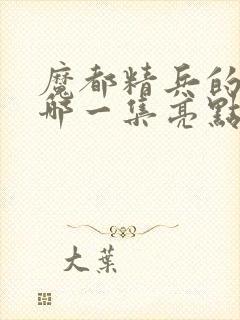 魔都精兵的
哪一集亮點
大葉